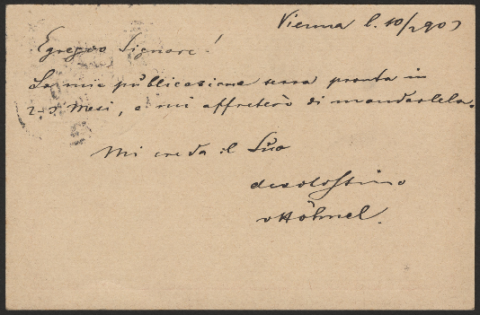 Vienna l. 10/2 903
Egregio Signore!
La mia pubblicazione sarà pronta in
2-3 mesi, e mi affretterò di mandarlela.
Mi creda il Suo
devotissimo
vHöhnel.